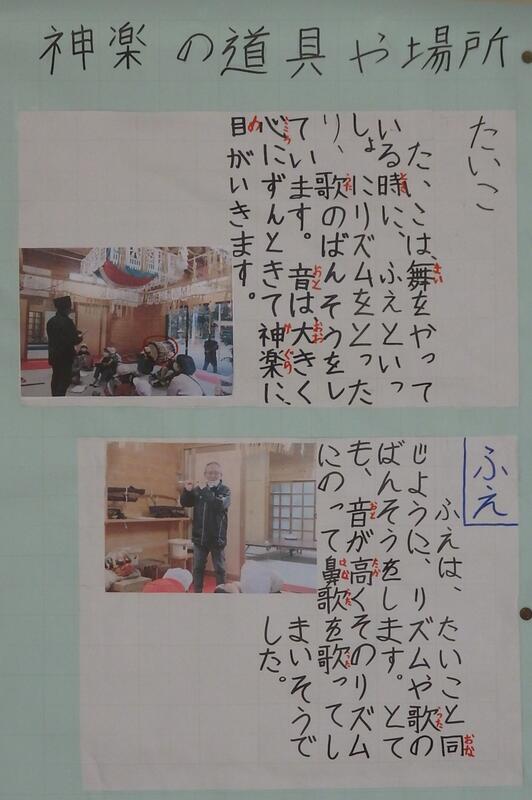 神楽の道具や場所
たいこ
たいこは、舞をやって
いる時に、ふえといっ
しょにリズムをとった
り、歌のばんそうをし
ています。音は、大きく
心にずんときて神楽に、
目がいきます。
ふえ
ふえは、たいこと同
じように、リズムや歌の
ばんそうをします。とて
も、音が高くそのリズム
にのって鼻歌を歌ってし
まいそうで
した。